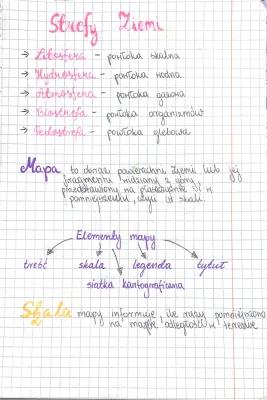 Strefy Ziemi
→ Litosfera - powłoka skalna
→ Hydrosfera - powłoka wodna
→ Atmosfera - powłoka gazowa
→ Biosfera - powłoka organizmów
→ Pedosfera - powłoka glebowa
Mapa, to obraz powierzchni Ziemi lub jej
fragmentu widziany z góry,
przedstawiony na płaszczyźnie i w
pomniejszeniu, czyli w skali.
Elementy mapy
treść skala legenda tytuł
siatka kartograficzna
Skala mapy informuje, ile razy pomniejszono
na mapie odległości w terenie